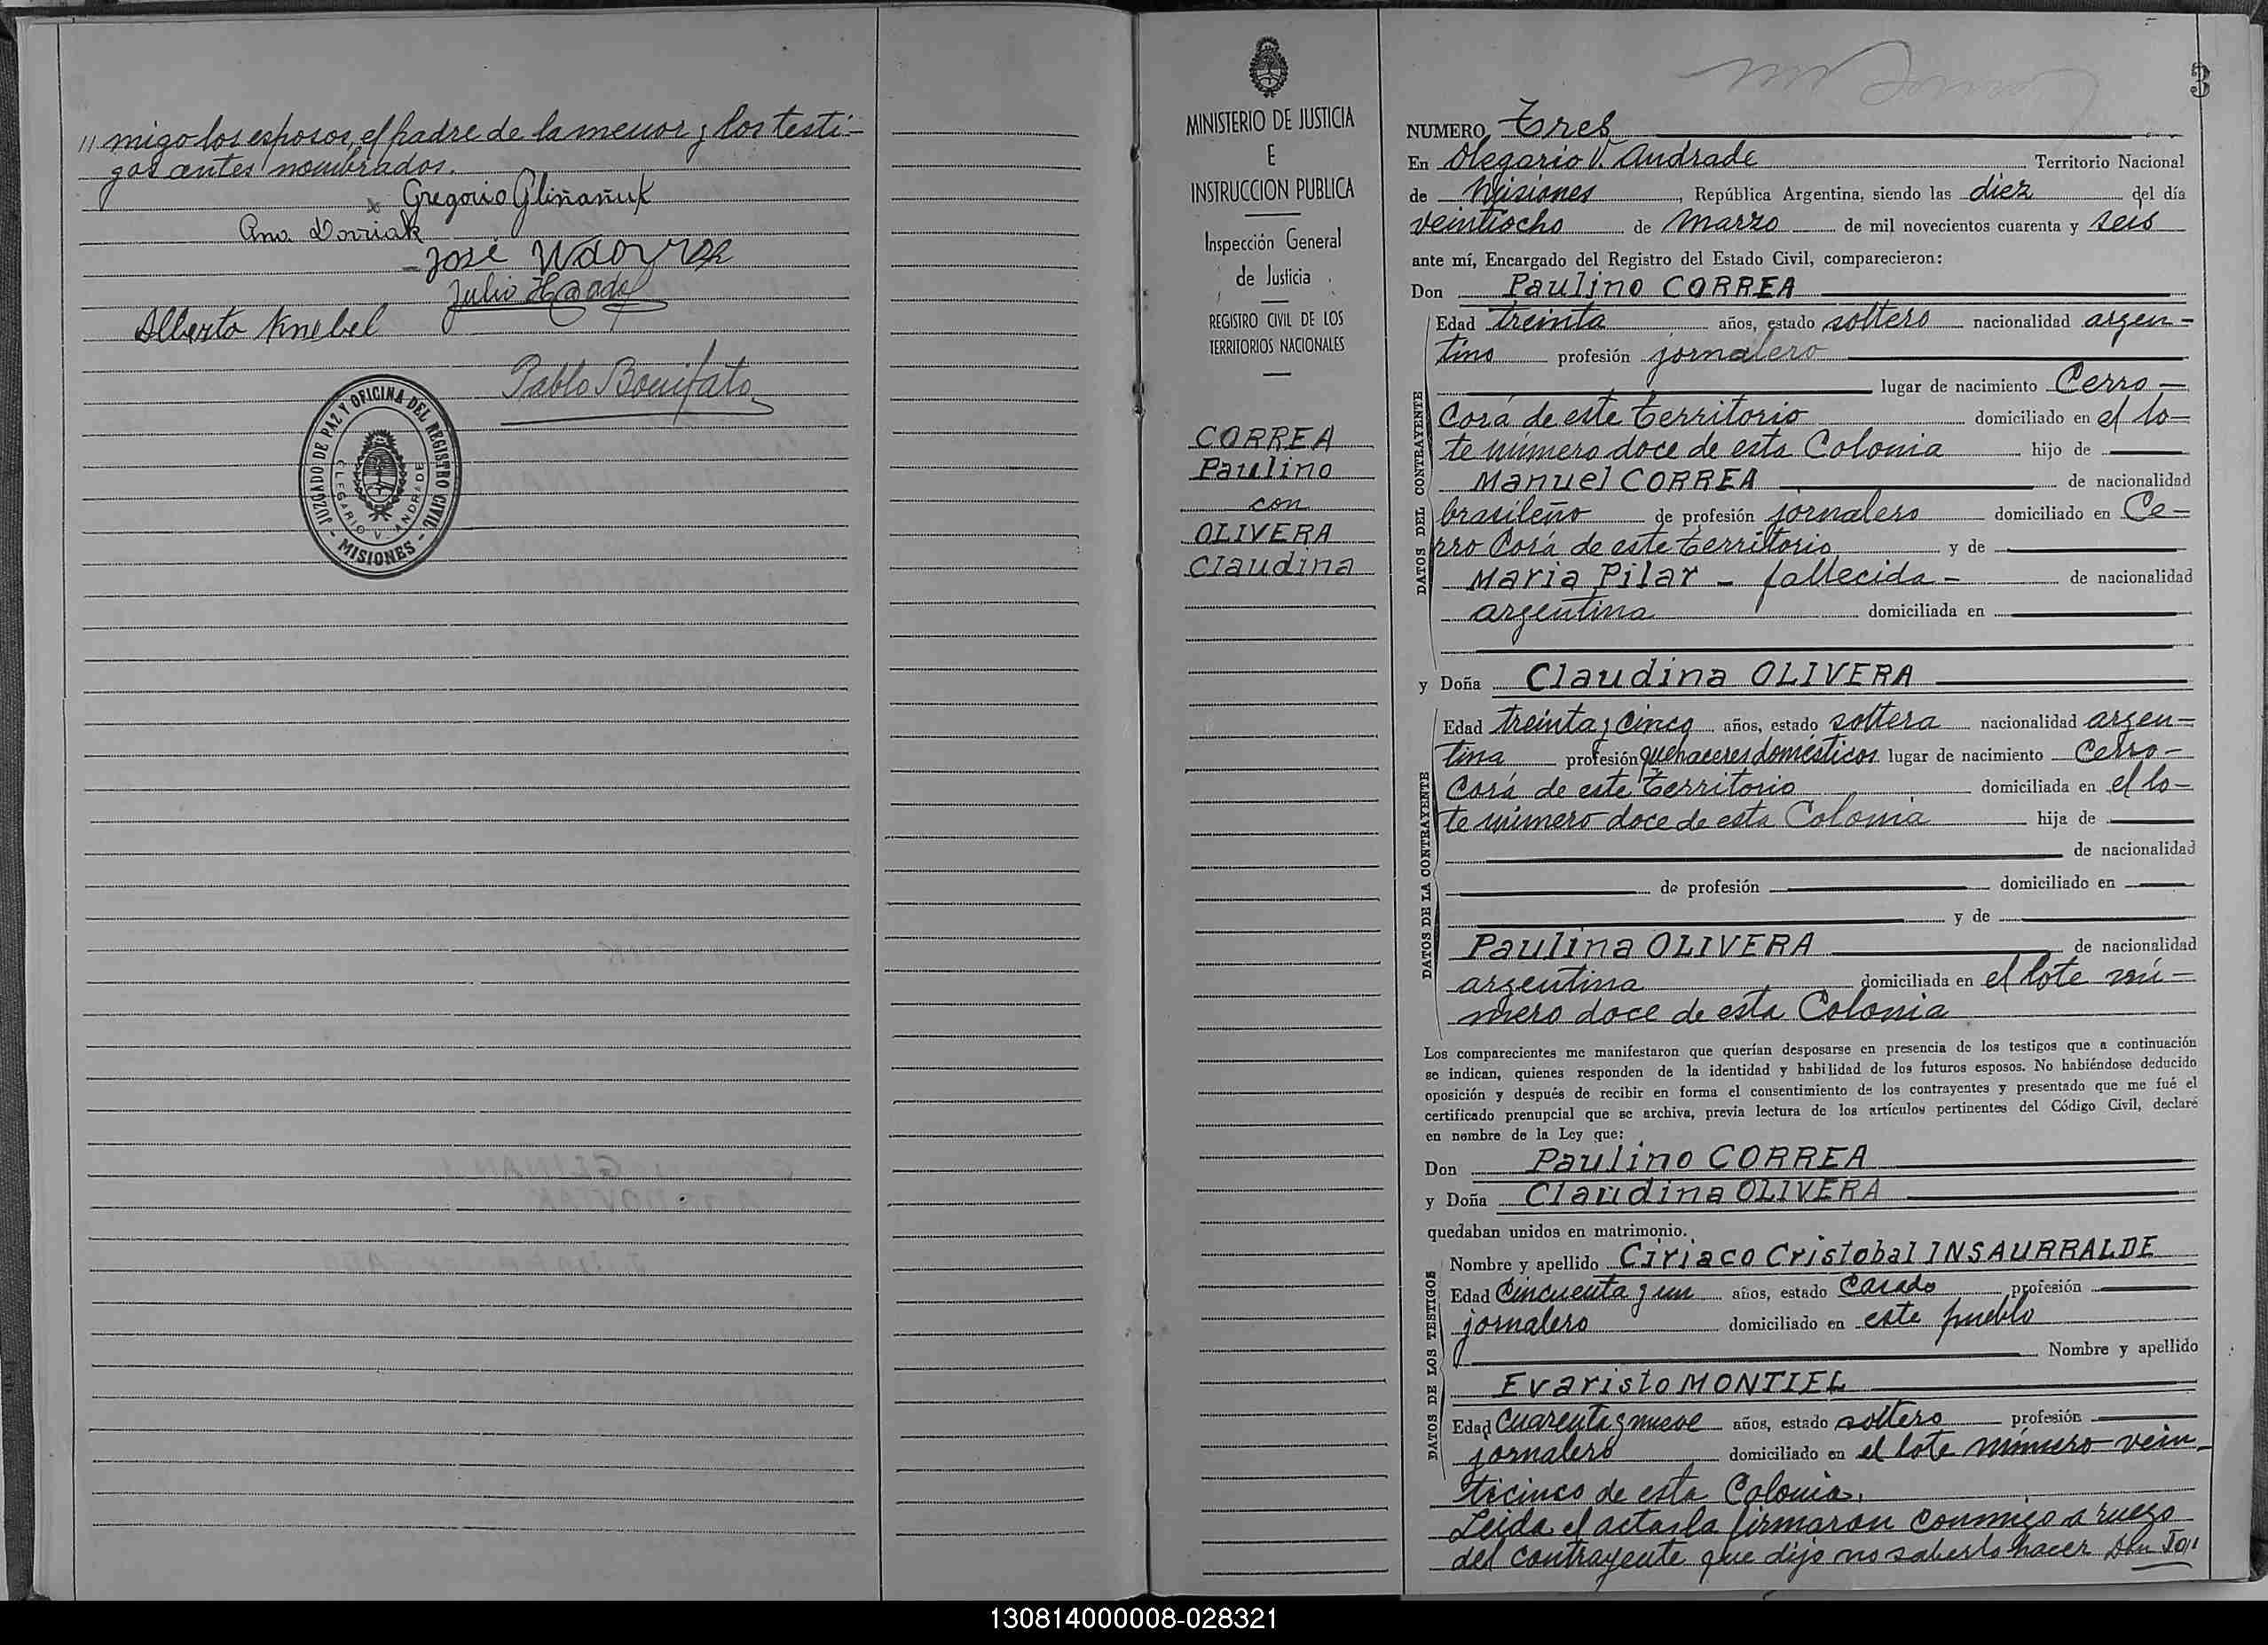 // migo los esposos, el padre de la menor y los testi-
gos antes nombrados.
x Gregorio Gliñañuk
Ana Dovriak
José
Julio
Alberto Knebel
Pablo Bonifato
JUZGADO DE PAZ Y OFICINA DEL REGISTRO CIVIL
OLEGARIO V. ANDRADE
- MISIONES -
MINISTERIO DE JUSTICIA
E
INSTRUCCION PUBLICA
Inspección General
de Justicia
REGISTRO CIVIL DE LOS
TERRITORIOS NACIONALES
CORREA
Paulino
con
OLIVERA
Claudina
3
NUMERO Tres
En Olegario V. Andrade Territorio Nacional
de Misiones, República Argentina, siendo las diez del día
veintiocho de Marzo de mil novecientos cuarenta y seis
ante mí, Encargado del Registro del Estado Civil, comparecieron:
Don Paulino CORREA
DATOS DEL CONTRAYENTE
Edad treinta años, estado soltero nacionalidad argen-
tino profesión jornalero
lugar de nacimiento Cerro-
Corá de este territorio domiciliado en el lo-
te número doce de esta Colonia hijo de
Manuel CORREA de nacionalidad
brasileño de profesión jornalero domiciliado en Ce-
rro Corá de este territorio y de
Maria Pilar - fallecida - de nacionalidad
argentina domiciliada en
y Doña Claudina OLIVERA
DATOS DE LA CONTRAYENTE
Edad treinta y cinco años, estado soltera nacionalidad argen-
tina profesión quehaceres domésticos lugar de nacimiento Cerro-
Corá de este territorio domiciliada en el lo-
te número doce de esta Colonia hija de
de nacionalidad
de profesión domiciliado en
y de
Paulina OLIVERA de nacionalidad
argentina domiciliada en el lote nú-
mero doce de esta Colonia
Los comparecientes me manifestaron que querían desposarse en presencia de los testigos que a continuación
se indican, quienes responden de la identidad y habilidad de los futuros esposos. No habiéndose deducido
oposición y después de recibir en forma el consentimiento de los contrayentes y presentado que me fué el
certificado prenupcial que se archiva, previa lectura de los artículos pertinentes del Código Civil, declaré
en nombre de la Ley que:
Don Paulino CORREA
y Doña Claudina OLIVERA
quedaban unidos en matrimonio.
DATOS DE LOS TESTIGOS
Nombre y apellido Ciriaco Cristobal INSAURRALDE
Edad Cincuenta y un años, estado Casado profesión
jornalero domiciliado en este pueblo
Nombre y apellido
Evaristo MONTIEL
Edad Cuarenta y nueve años, estado soltero profesión
jornalero domiciliado en el lote número vein-
ticinco de esta Colonia.
Leída el acta, la firmaron conmigo a ruego
del contrayente que dijo no saberlo hacer Don
130814000008-028321